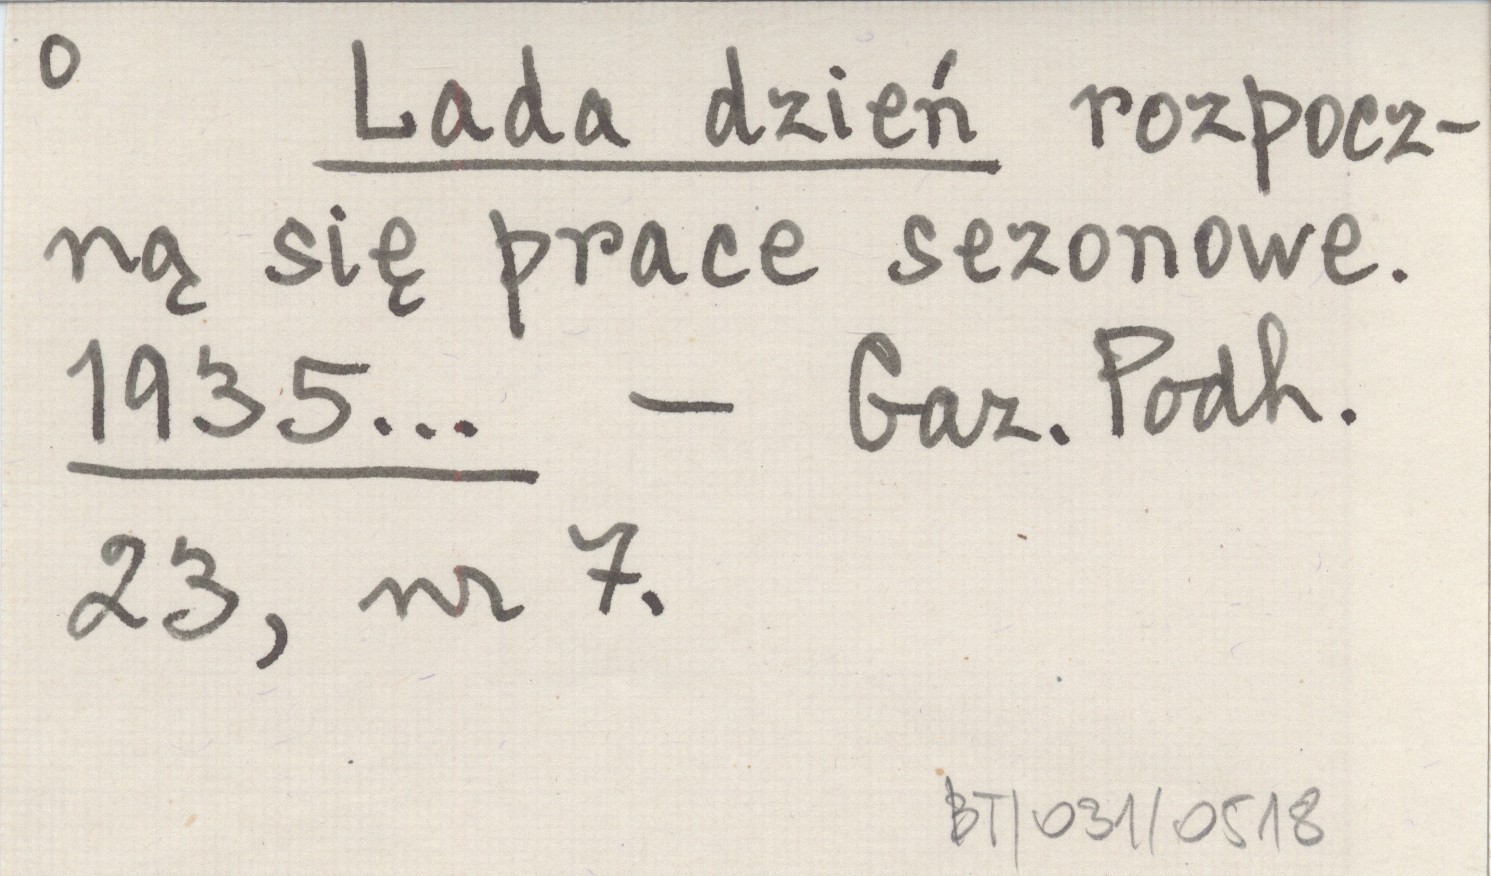 0
Lada dzień rozpocz-
ną się prace sezonowe.
1935... — Gaz. Podh.
23, nr 7.
BT/031/0518